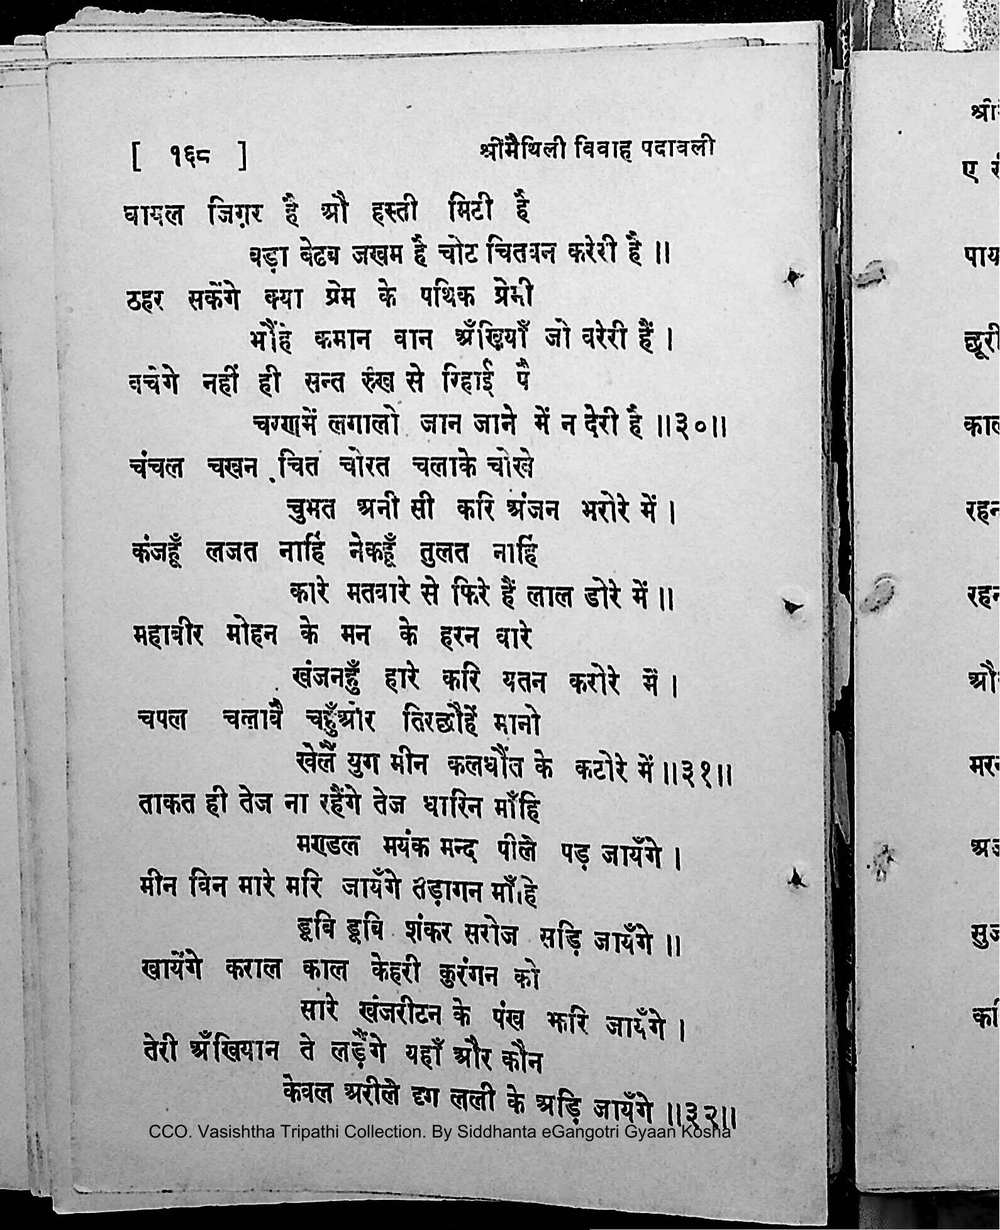 [ १६८ ] श्रीमैथिली विवाह पदावली
घायल जिगर है औ हस्ती मिटी है
बड़ा बेढब जखम है चोट चितवन करेरी है ॥
ठहर सकेंगे क्या प्रेम के पथिक प्रेमी
भौंहे कमान वान अँखियाँ जो वरेरी हैं ।
बचेगे नहीं ही सन्त रुख से रिहाई पै
चरणमें लगालो जान जाने में न देरी है ॥३०॥
चंचल चखन चित चोरत चलाके चोखे
चुभत अनी सी करि अंजन भरोरे में ।
कंजहूँ लजत नाहिं नेकहूँ तुलत नाहिं
कारे मतवारे से फिरे हैं लाल डोरे में ॥
महावीर मोहन के मन के हरन वारे
खंजनहुँ हारे करि यतन करोरे में ।
चपल चलावै चहुँओर तिरछौहें मानो
खेलैं युग मीन कलधौंत के कटोरे में ॥३१॥
ताकत ही तेज ना रहैंगे तेज धारिन माँहि
मण्डल मयंक मन्द पीले पड़ जायँगे ।
मीन विन मारे मरि जायँगे तड़ागन माँहि
डूबि डूबि शंकर सरोज सड़ि जायँगे ॥
खायेंगे कराल काल केहरी कुरंगन को
सारे खंजरीटन के पंख झरि जायँगे ।
तेरी अँखियान ते लड़ैंगे यहाँ और कौन
केवल अरीले दृग लली के अड़ि जायँगे ॥३२॥
CCO. Vasishtha Tripathi Collection. By Siddhanta eGangotri Gyaan Kosha
श्री
ए
पाय
छूरी
काल
रहन
रहन
औ
मर
अ
सु